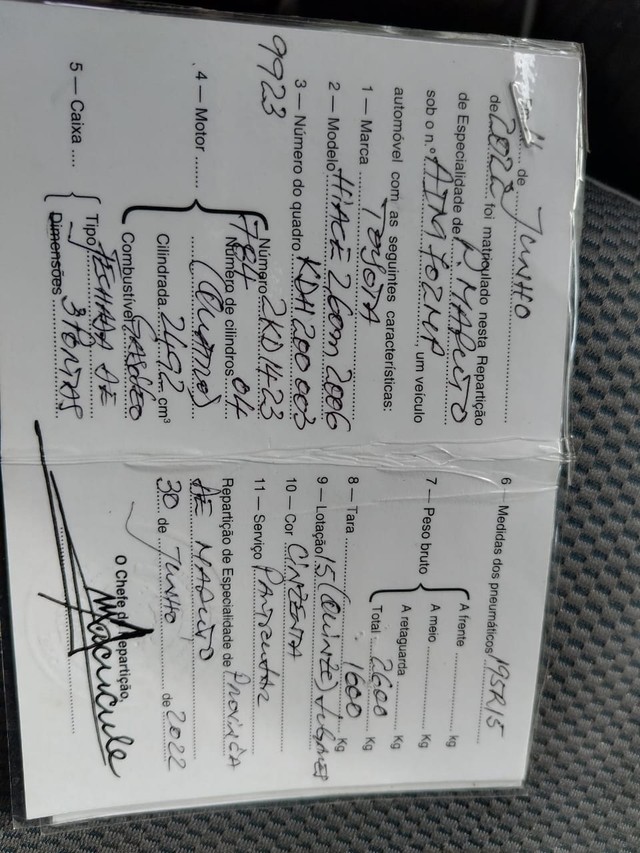 de JUNHO
de 2022 foi matriculado nesta Repartição
de Especialidade de P. MAPUTO
sob o n.º AIM 702 MP, um veículo
automóvel com as seguintes características:
1 — Marca TOYOTA
2 — Modelo HIACE 2,600m 2006
3 — Número do quadro KDH200 003
9923
4 — Motor
Número 2KD1423
784
Número de cilindros 04
(QUATRO)
Cilindrada 2492 cm³
Combustível GASOLEO
5 — Caixa
Tipo FECHADA DE
Dimensões 3 PORTAS
6 — Medidas dos pneumáticos 195R15
7 — Peso bruto
A frente kg
A meio Kg
A retaguarda Kg
Total 2600 Kg
8 — Tara 1600 Kg
9 — Lotação 15 (QUINZE) LUGARES
10 — Cor CINZENTA
11 — Serviço PARTICULAR
Repartição de Especialidade de PROVINCIA
DE MAPUTO
30 de JUNHO de 2022
O Chefe da Repartição,